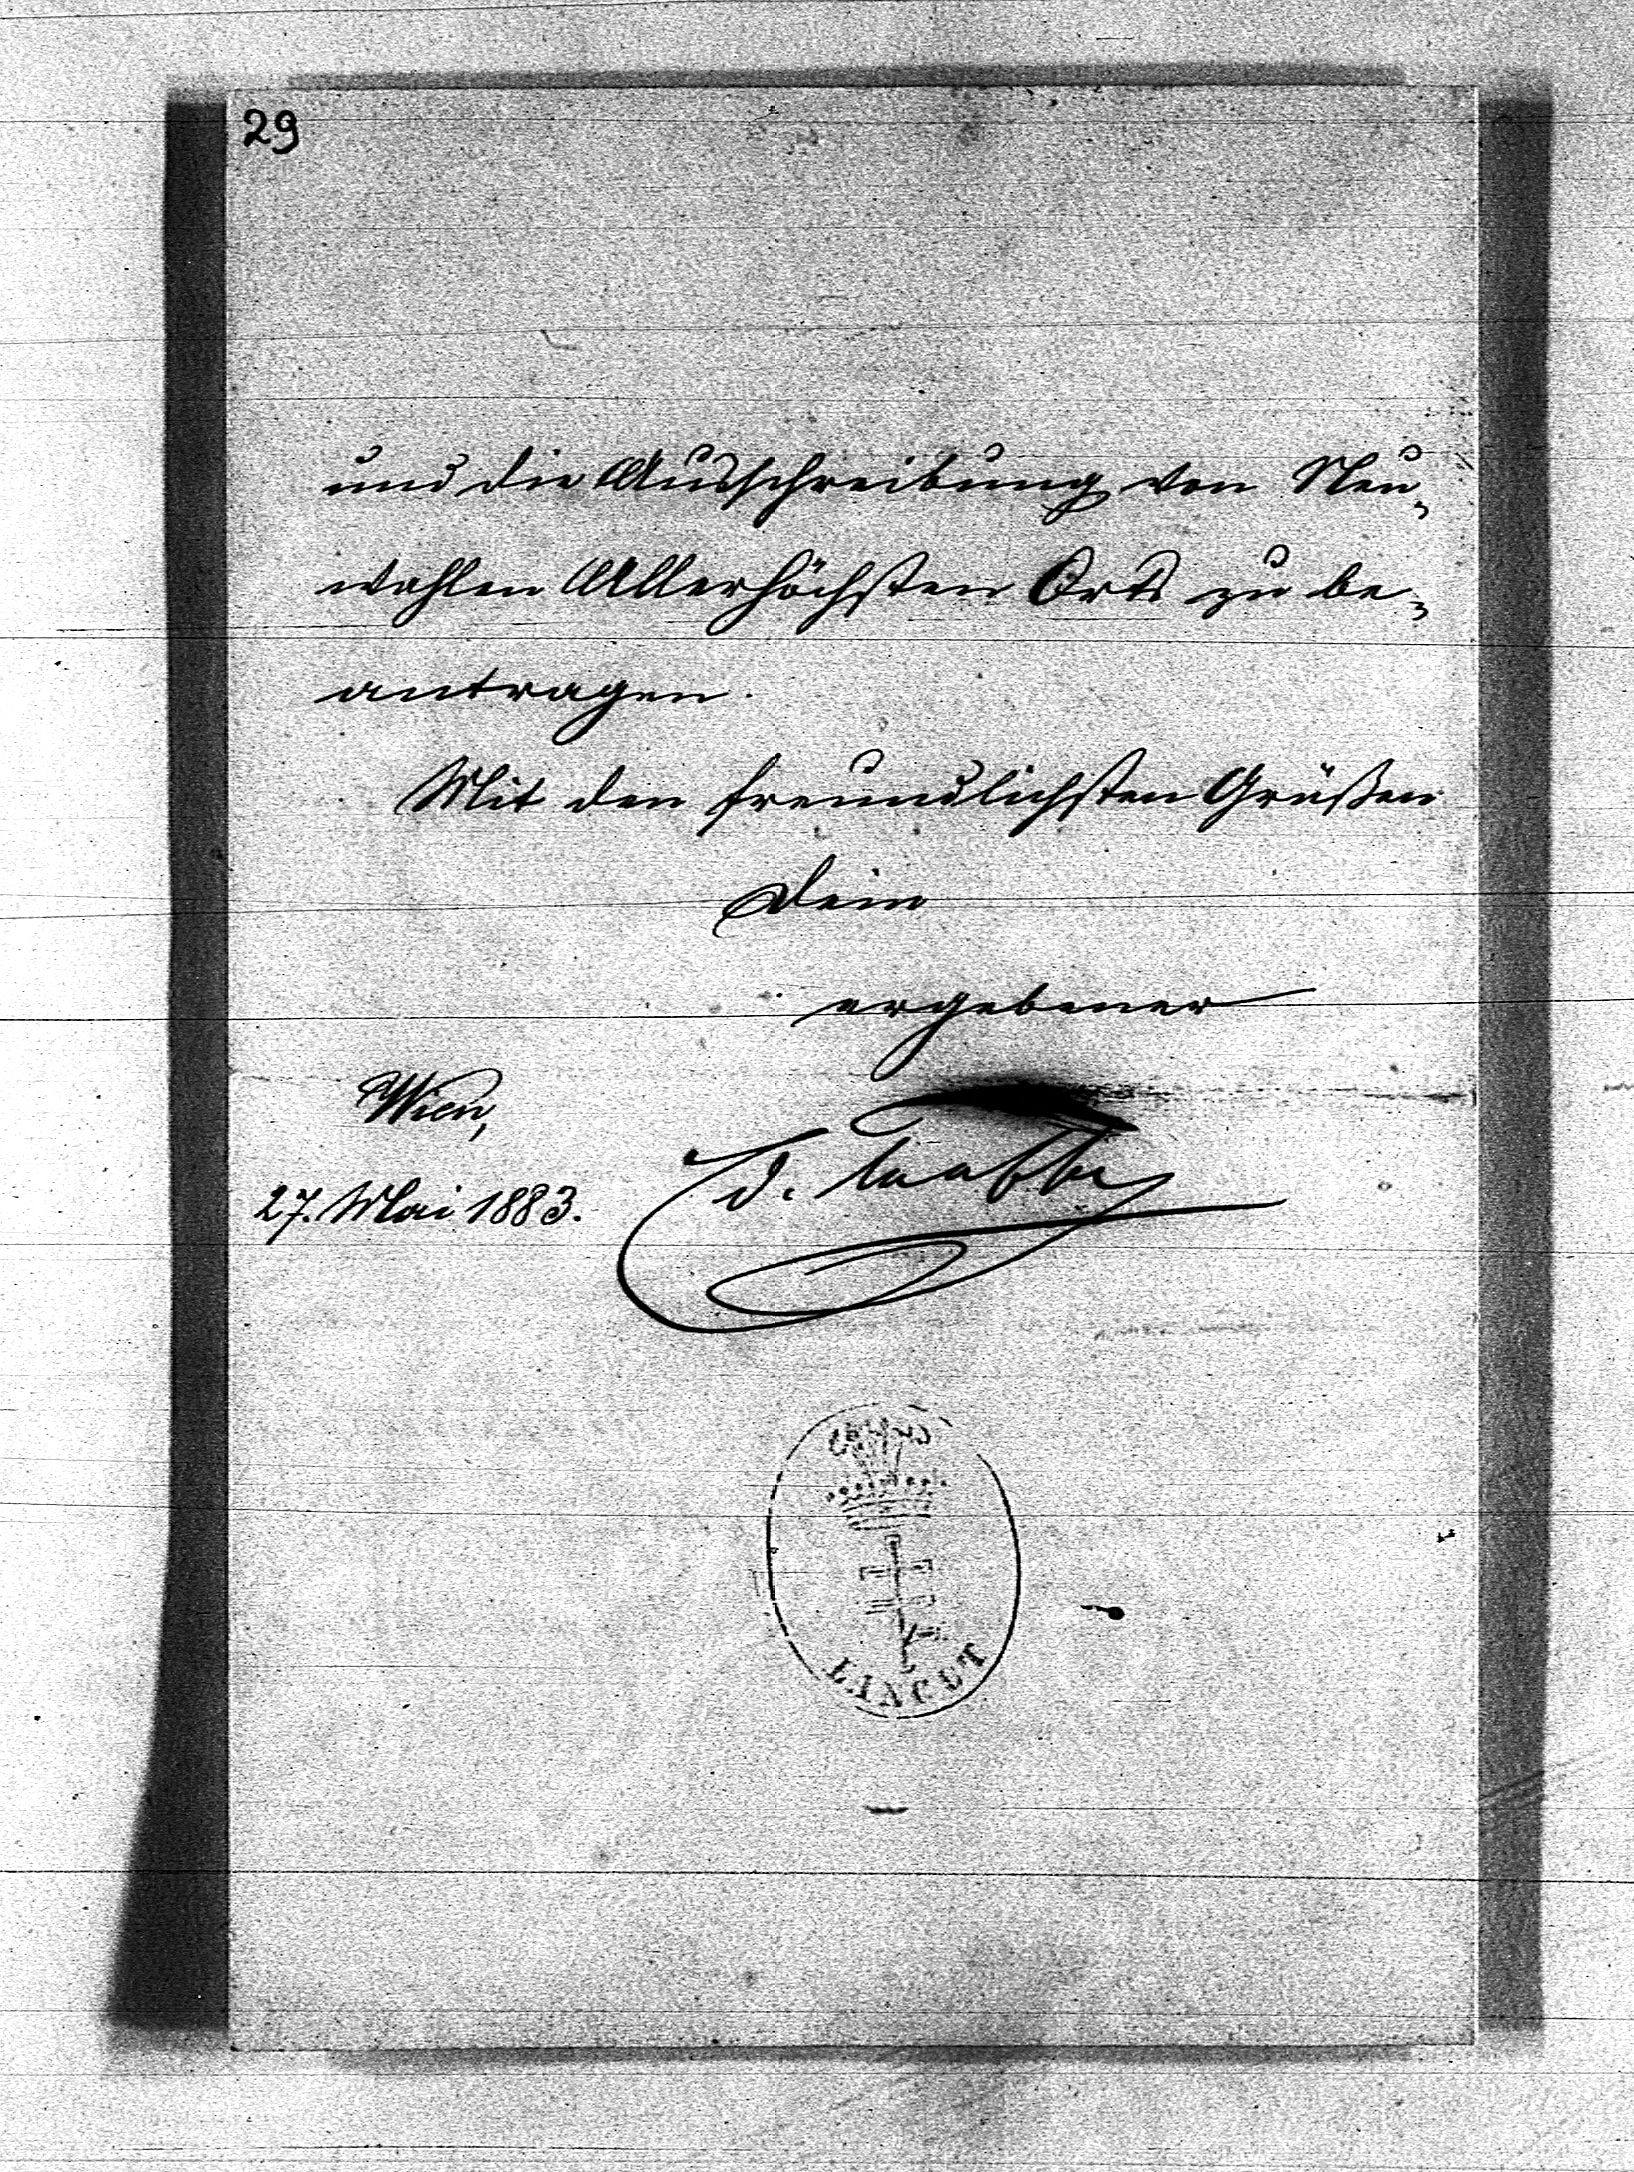 29
und die Ausschreibung von Neu-
wahlen Allerhöchsten Orts zu be-
antragen.
Mit den freundlichsten Grüßen
Dein
ergebener
Wien,
27. Mai 1883.
Taaffe